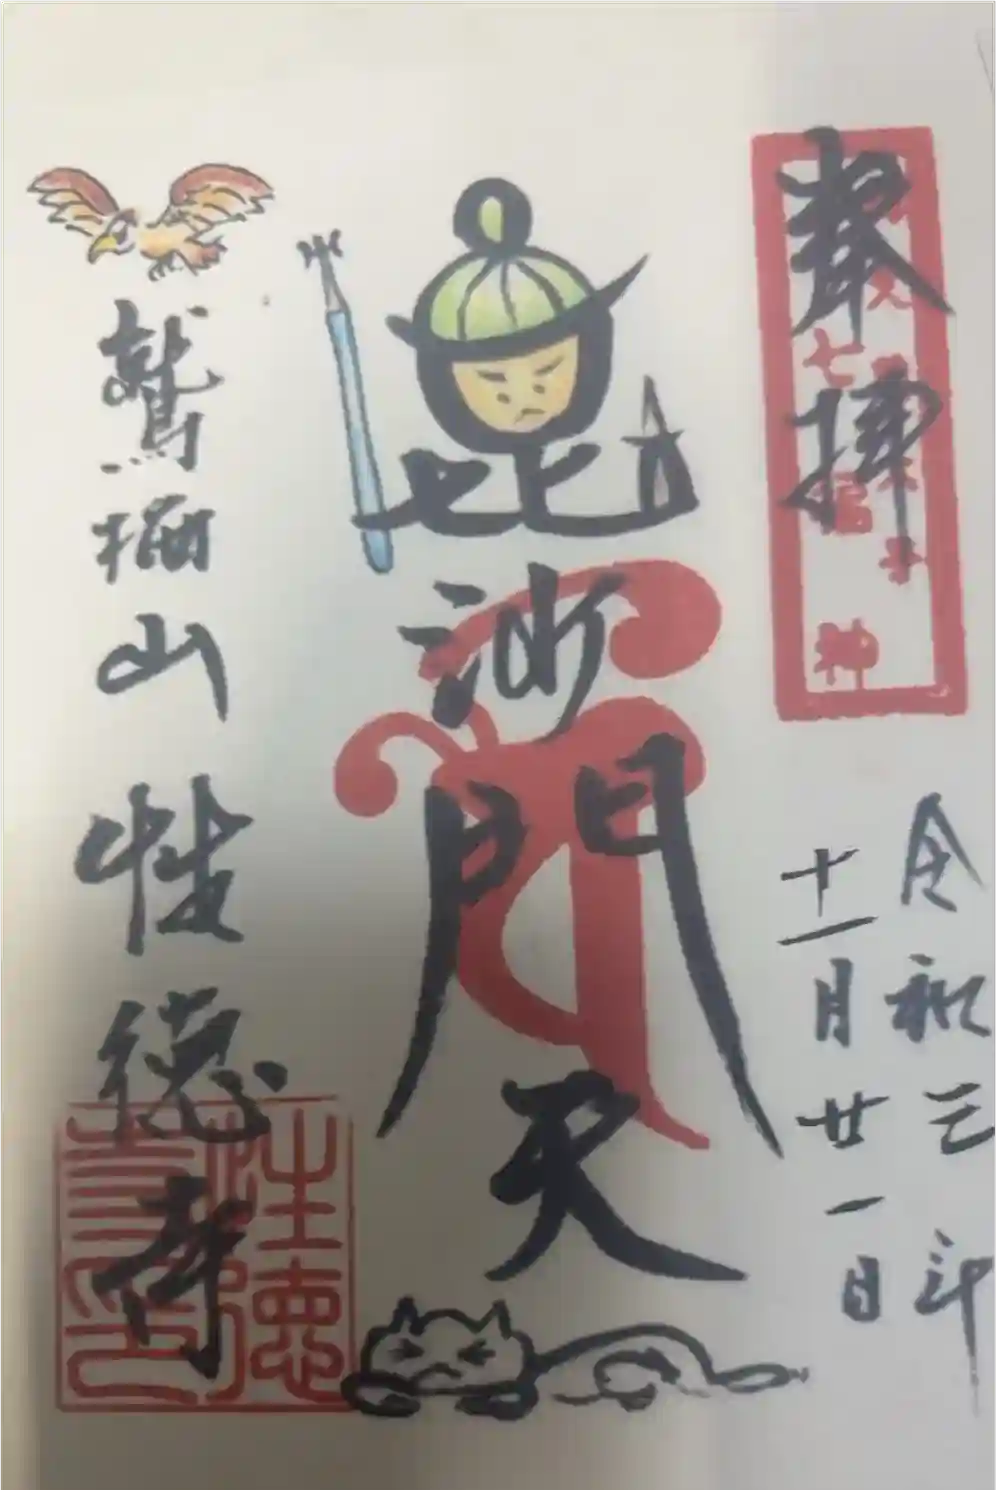 奉拝
七福神
令和三年
十一月廿一日
毘沙門天
鷲栖山性徳寺
性徳
寺印